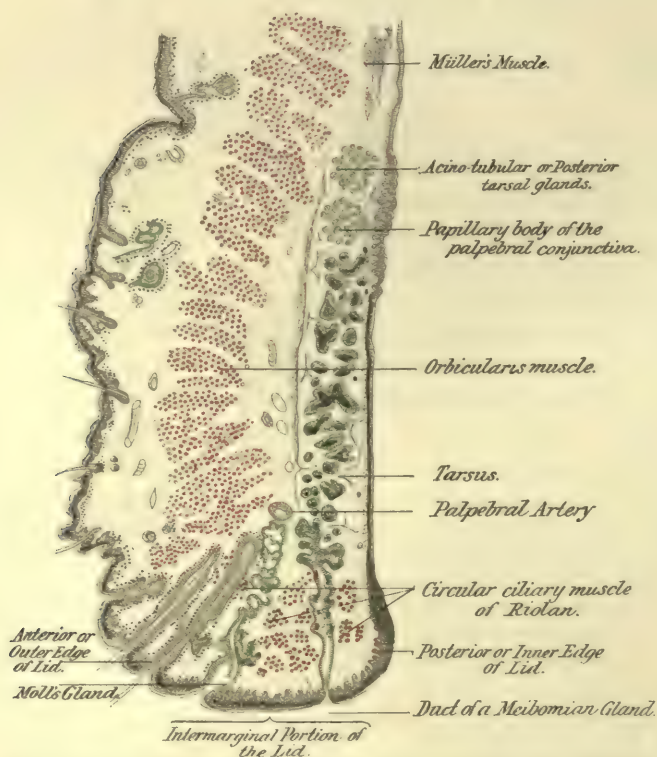 Müller's Muscle.
Acino-tubular or Posterior
tarsal glands.
Papillary body of the
palpebral conjunctiva.
Orbicularis muscle.
Tarsus.
Palpebral Artery
Circular ciliary muscle
of Riolan.
Anterior or
Outer Edge
of Lid.
Posterior or Inner Edge
of Lid.
Moll's Gland.
Duct of a Meibomian Gland.
Intermarginal Portion of
the Lid.